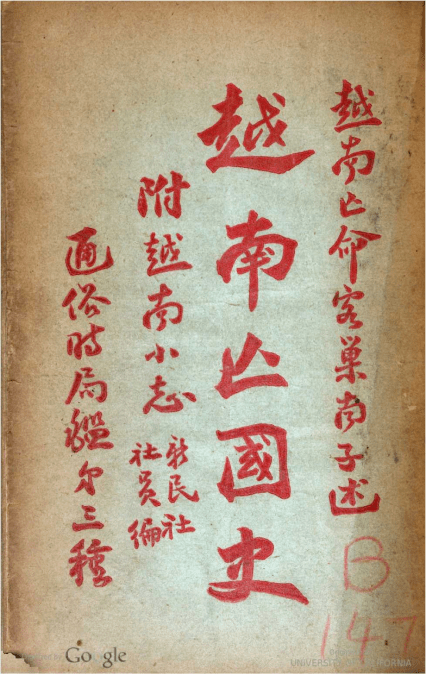 越南亡命客巢南子述
越南亡國史
附越南小志
新民社
社員編
通俗时局鑑第三種
B
147
Google
UNIVERSITY OF CALIFORNIA